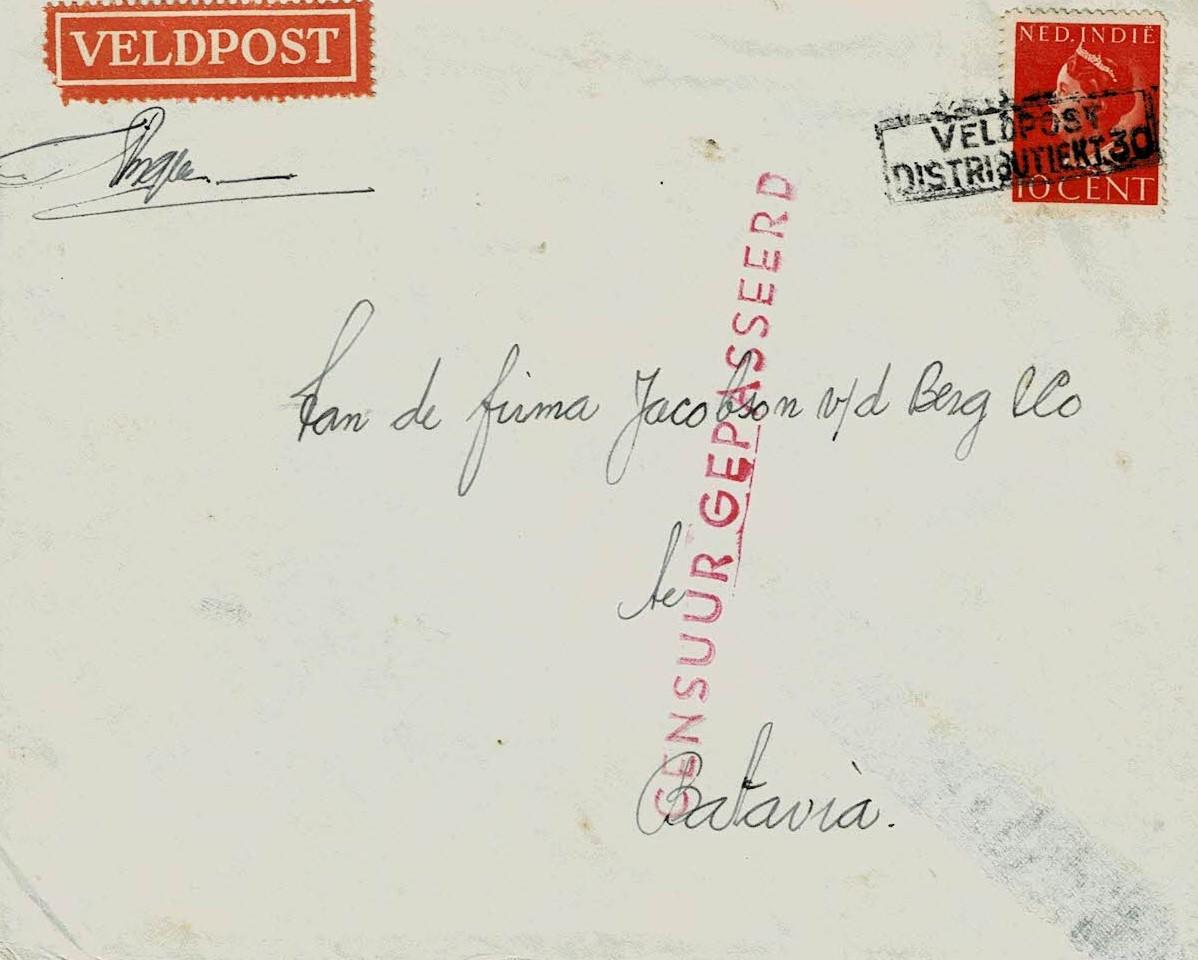 VELDPOST
NED. INDIË
VELDPOST
DISTRIBUTIEKT.30
10 CENT
CENSUUR GEPASSEERD
Aan de firma Jacobson v/d Berg & Co
te
Batavia.